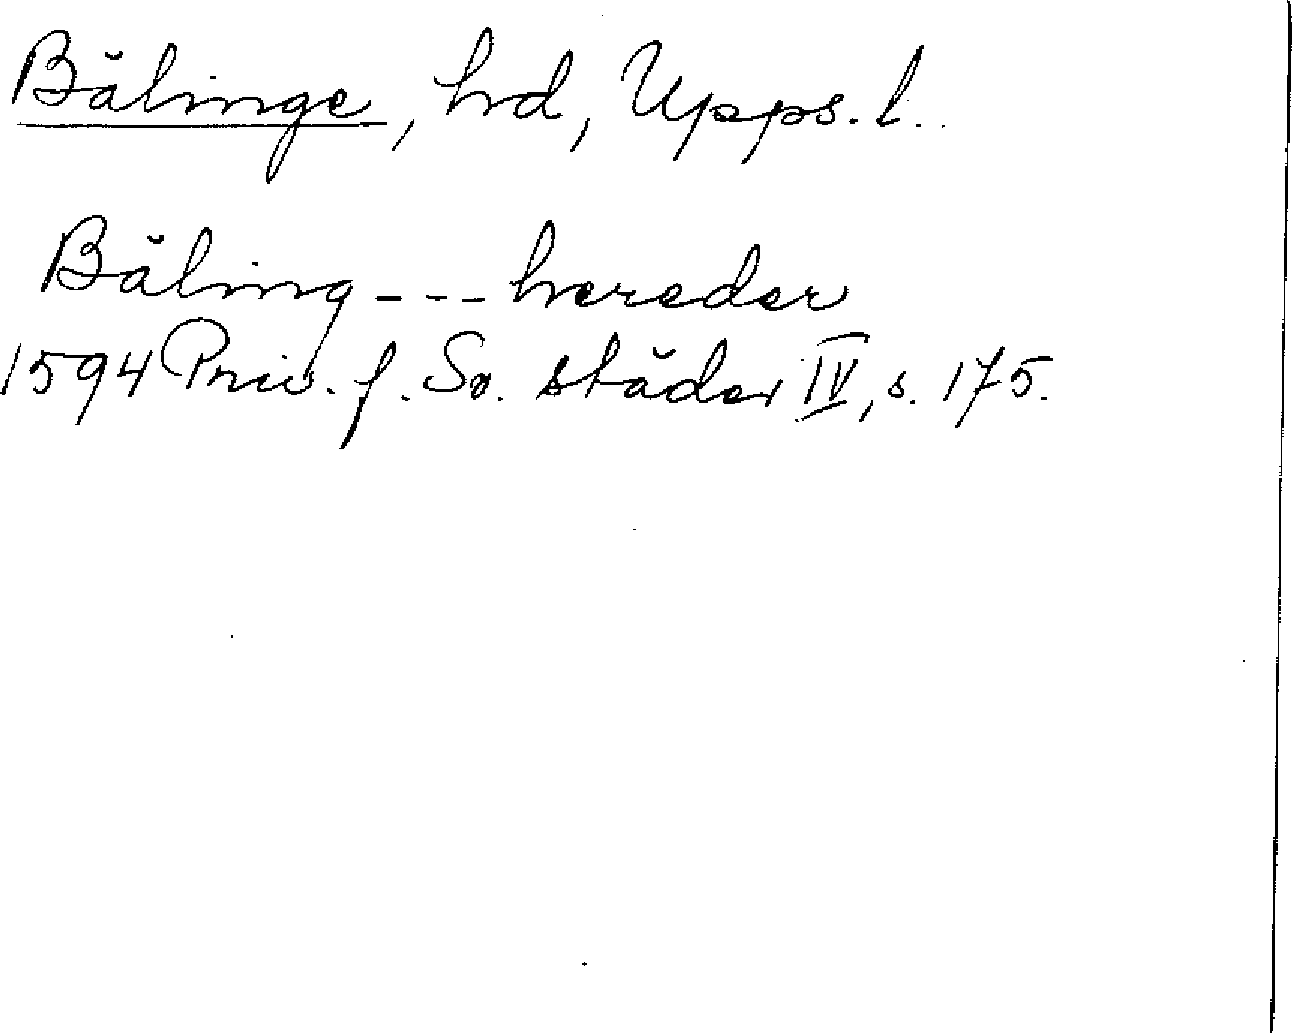 Bälinge, hd, Upps. l.
Bäling --- hereder
1594 Priv. f. Sv. städer IV, s. 175.